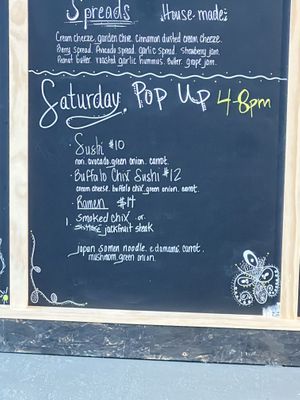 Spreads House made:
Cream cheeze. garden chive. cinnamon dusted cream cheeze.
Berry spread. Avocado spread. garlic spread. Strawberry jam.
Peanut butter. roasted garlic hummus. Butter. grape jam.
Saturday Pop Up 4-8pm
· Sushi $10
nori. avocado. green onion. carrot.
· Buffalo Chix Sushi $12
cream cheeze. buffalo chix. green onion. carrot.
· Ramen $14
smoked chix or
jackfruit steak
japan somen noodle. edamame. carrot.
mushroom. green onion.